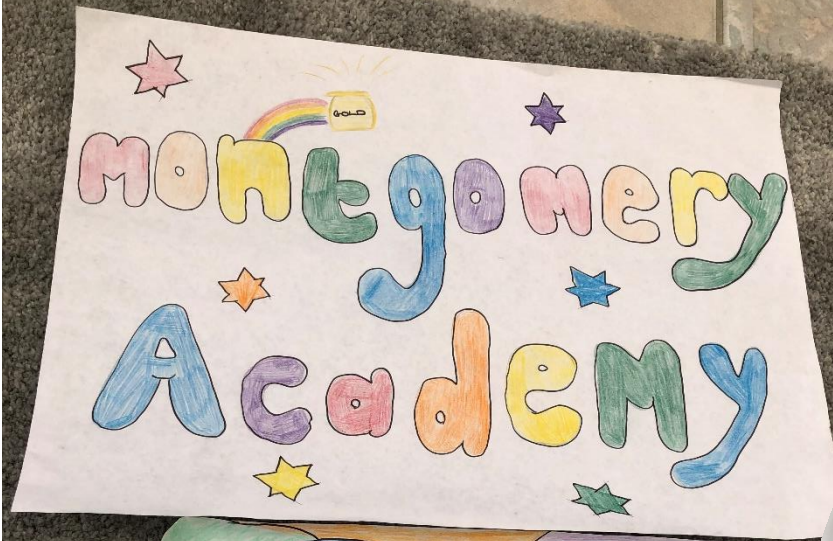 GOLD
montgomery
AcademY